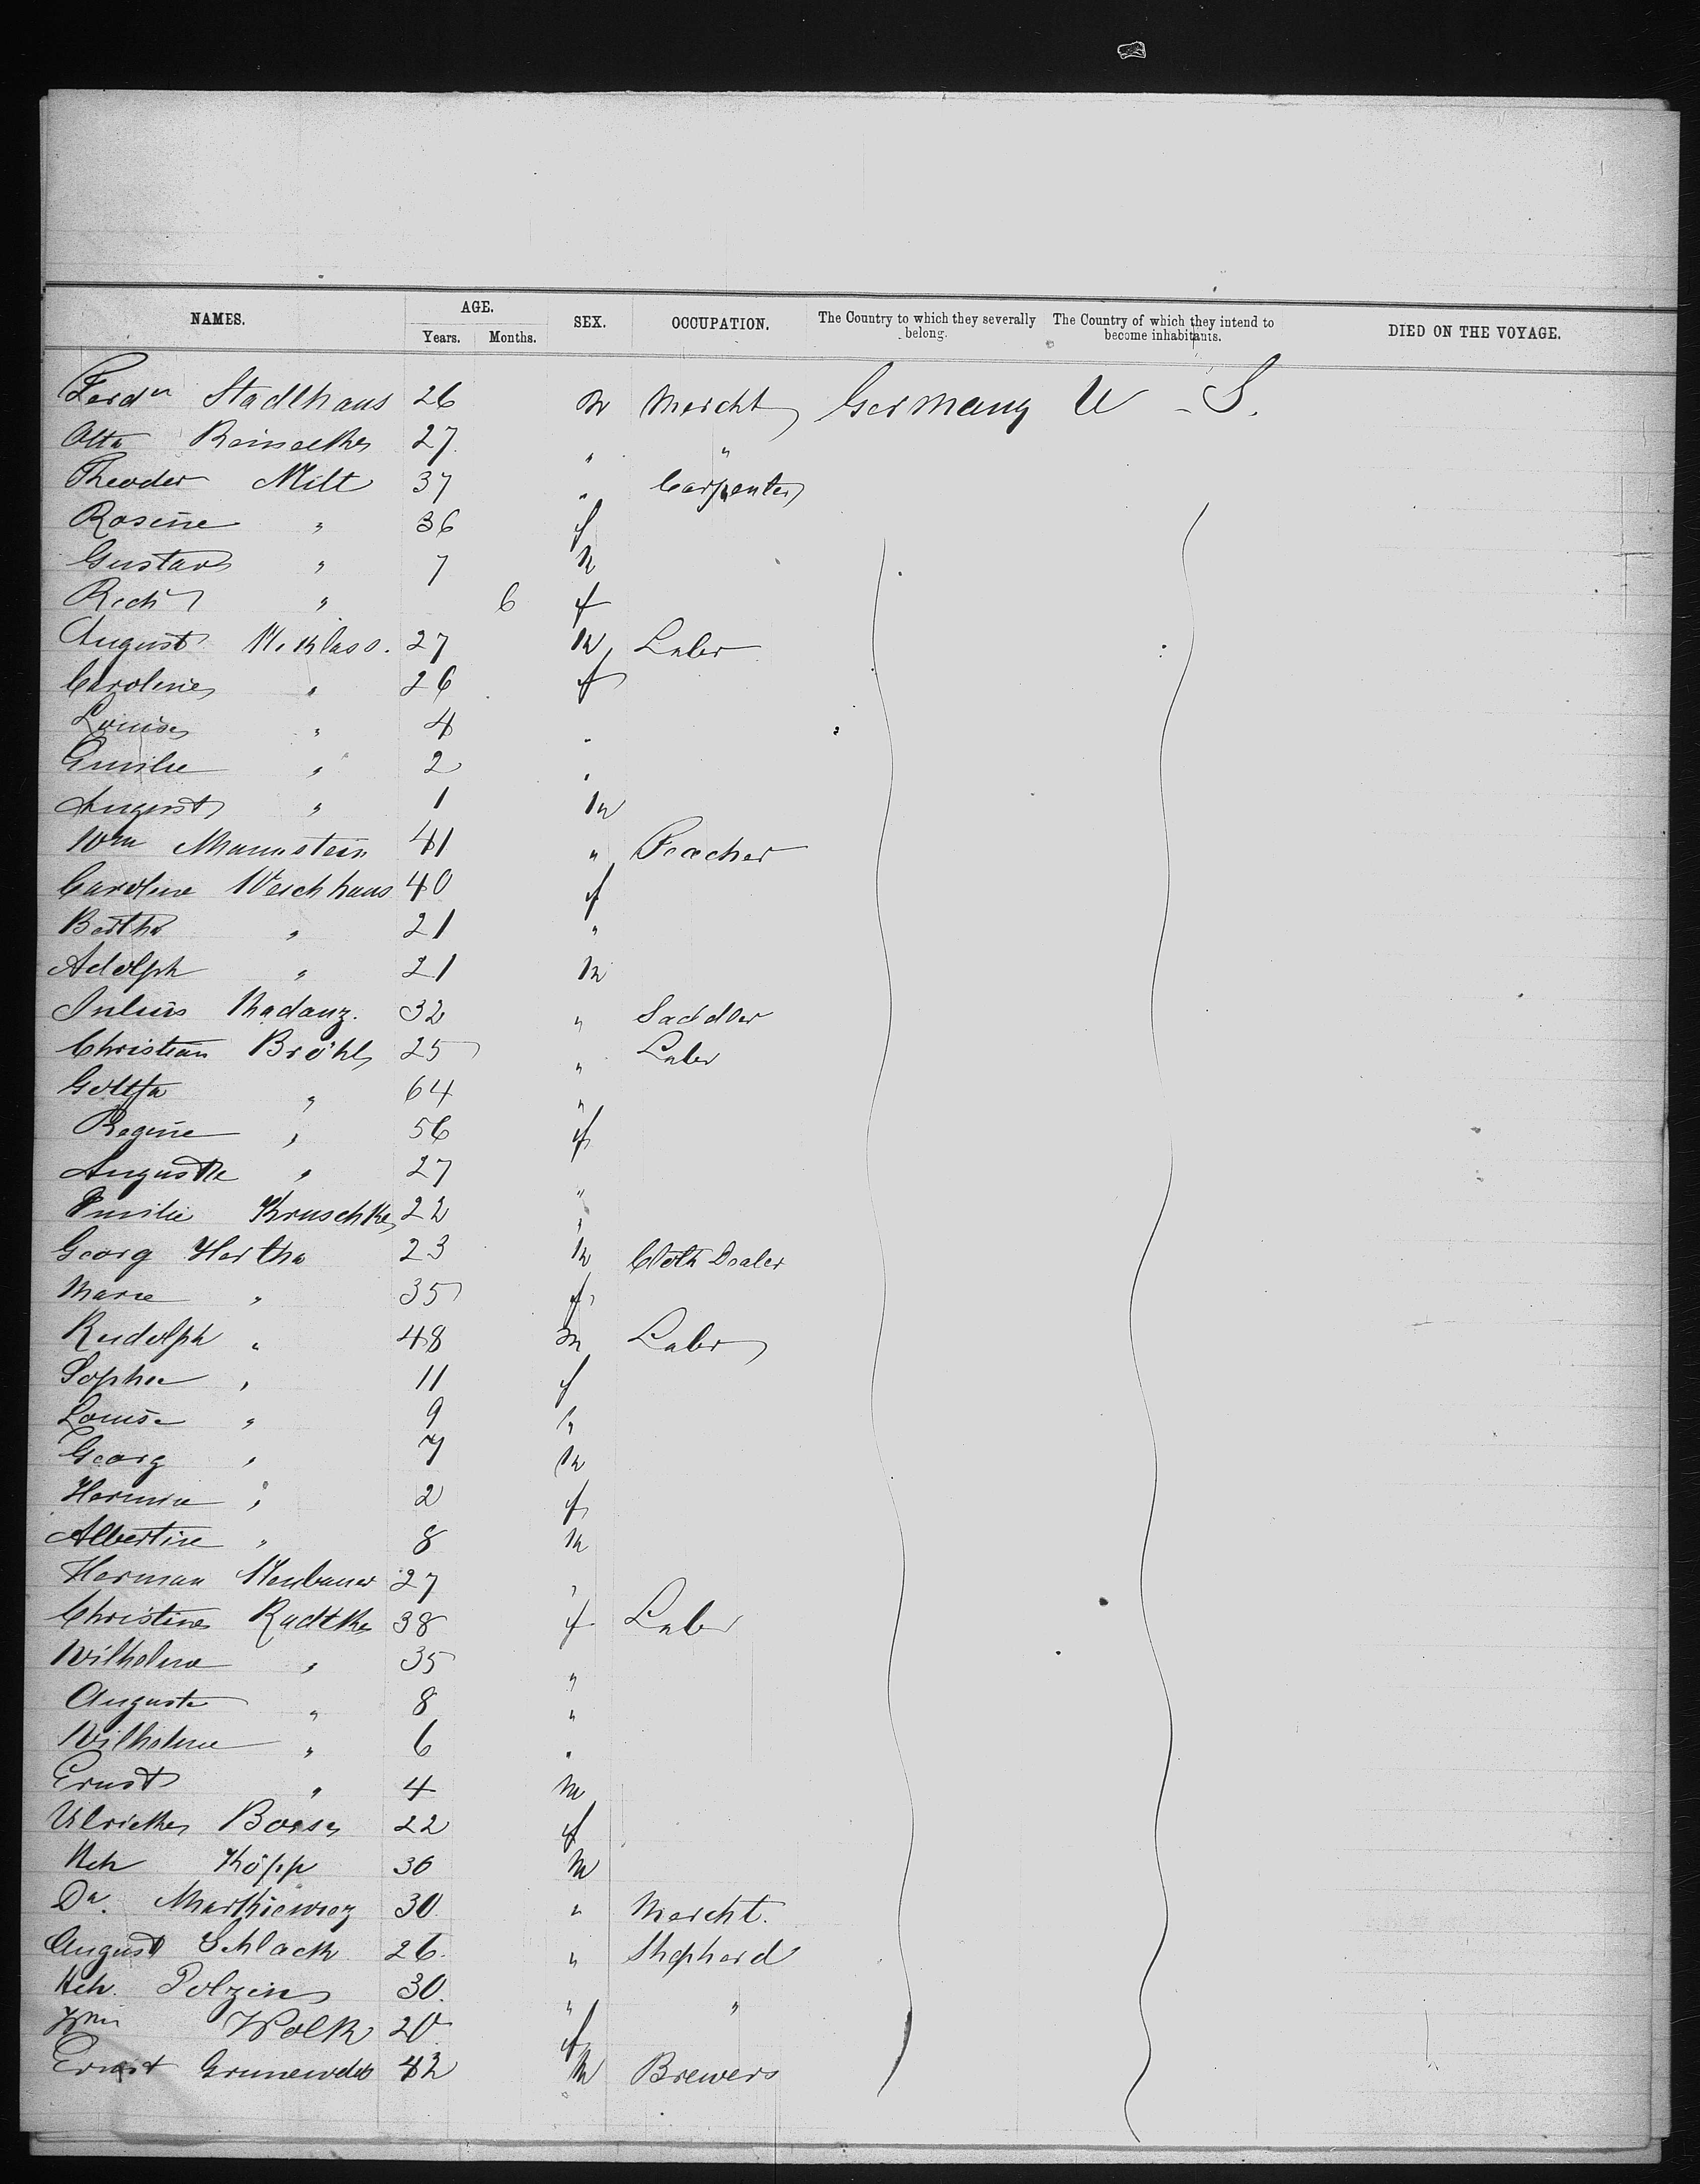 NAMES. AGE. SEX. OCCUPATION. The Country to which they severally belong. The Country of which they intend to become inhabitants. DIED ON THE VOYAGE.
Years. Months.
Ferdn Stadlhaus 26 m Mercht Germany U - S.
Otto Reinecke 27 " "
Theodor Milt 37 " Carpenter
Rosine " 36 f
Gustav " 7 m
" 6 f
August Niklas. 27 m Labr
Caroline " 26 f
Louise " 4 "
Emilie " 2 "
August " 1 m
Wm Mannstein 41 " Teacher
Caroline Weichhaus 40 f
Bertha " 21 "
Adolph " 21 m
Julius Radanz. 32 " Saddler
Christian Bröhl 25 " Labr
" 64 "
Regine " 56 f
Auguste " 27 "
Emilie Kruschke 22 "
Georg Hartha 23 m Cloth Dealer
Marie " 35 f
Rudolph " 48 m Labr
Sophie " 11 f
Louise " 9 "
Georg " 7 m
Hermine " 2 f
Albertine " 8 m
Herman Neubauer 27 "
Christine Radtke 38 f Labr
Wilhelmine " 35 "
Auguste " 8 "
Wilhelmine " 6 "
Ernst " 4 m
Ulricke Boese 22 f
Hch Köpp 36 m
Da. Markiewicz 30. " Mercht.
August Schlack 26. " Shepherd
Hch. Polzin 30. " "
Wolk 20 f
Ernst Grunewald 42 m Brewers